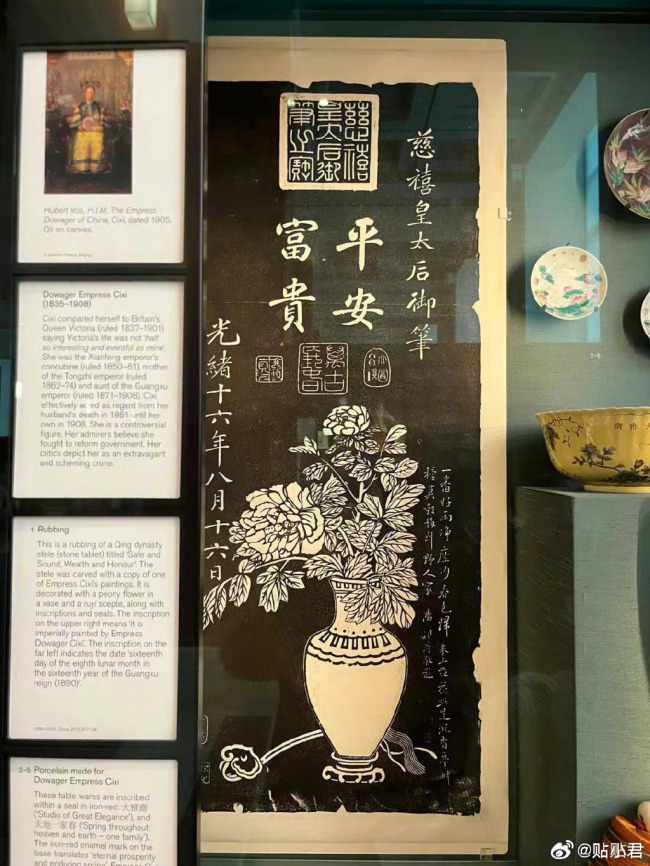 Hubert Vos, H.I.M, The Empress
Dowager of China, Cixi, dated 1905.
Oil on canvas.
Dowager Empress Cixi
(1835–1908)
Cixi compared herself to Britain's
Queen Victoria (ruled 1837–1901)
saying Victoria's life was not 'half
so interesting and eventful as mine'.
She was the Xianfeng emperor's
concubine (ruled 1850–61), mother
of the Tongzhi emperor (ruled
1862–74) and aunt of the Guangxu
emperor (ruled 1871–1908). Cixi
effectively acted as regent from her
husband's death in 1861 until her
own in 1908. She is a controversial
figure. Her admirers believe she
fought to reform government. Her
critics depict her as an extravagant
and scheming crone.
1 Rubbing
This is a rubbing of a Qing dynasty
stele (stone tablet) titled 'Safe and
Sound, Wealth and Honour'. The
stele was carved with a copy of one
of Empress Cixi's paintings. It is
decorated with a peony flower in
a vase and a ruyi scepte, along with
inscriptions and seals. The inscription
on the upper right means 'it is
imperially painted by Empress
Dowager Cixi'. The inscription on the
far left indicates the date 'sixteenth
day of the eighth lunar month in
the sixteenth year of the Guangxu
reign (1890)'.
2–5 Porcelain made for
Dowager Empress Cixi
These table wares are inscribed
within a seal in iron-red: 大雅齋
('Studio of Great Elegance'), and
天地一家春 ('Spring throughout
heaven and earth – one family').
The iron-red enamel mark on the
base translates 'eternal prosperity
and enduring spring'. Empress Ci
慈禧皇太后御筆
慈禧
皇太后御
筆之寶
平安
富貴
光緒十六年八月十六日
1-6
大雅齋
@贴贴君